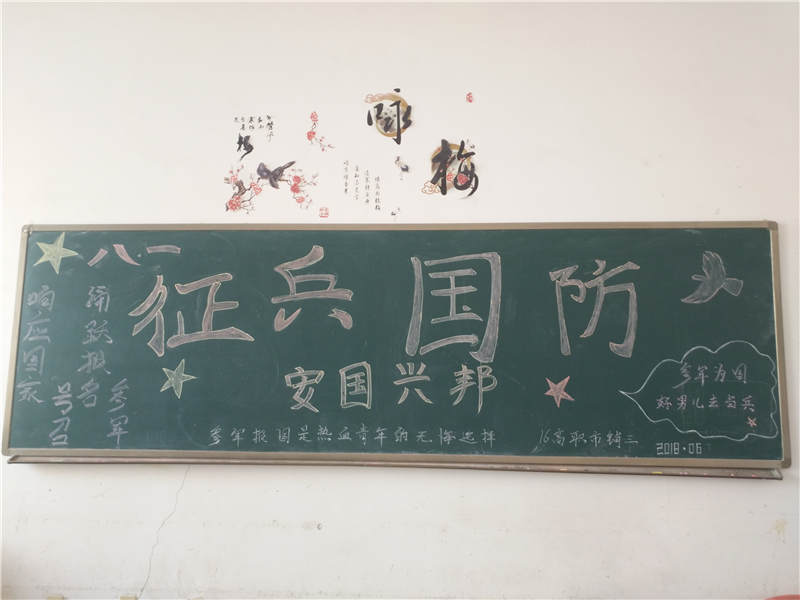 咏梅
八·一
征兵国防
安国兴邦
响应国家号召
踊跃报名参军
参军报国是热血青年的无悔选择
参军为国
好男儿去当兵
16高职市销三
2018·06